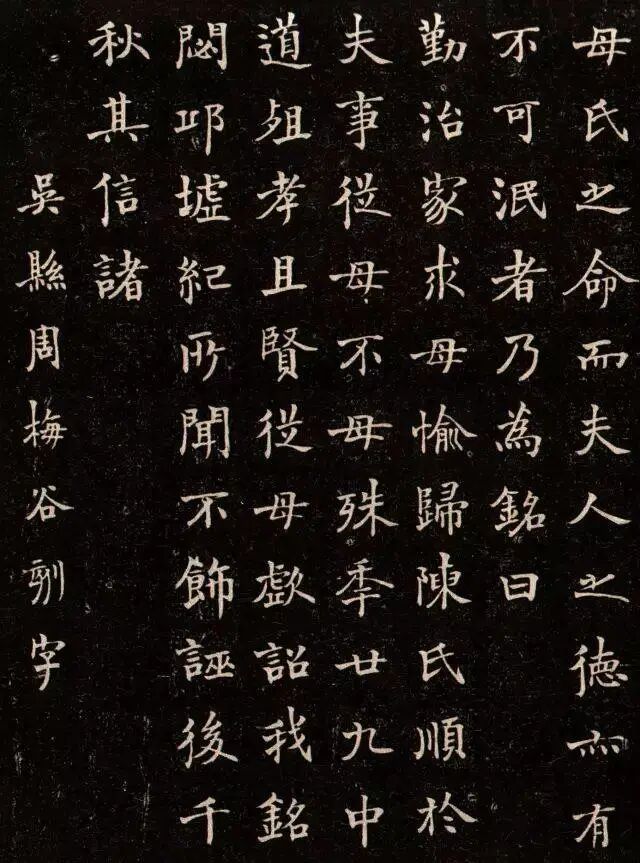 母氏之命而夫人之德亦有
不可泯者乃為銘曰
勤治家求母愉歸陳氏順於
夫事從母不母殊季廿九中
道殂孝且賢從母歔詔我銘
閟邛墟紀所聞不飾誣後千
秋其信諸
吳縣周梅谷刻字